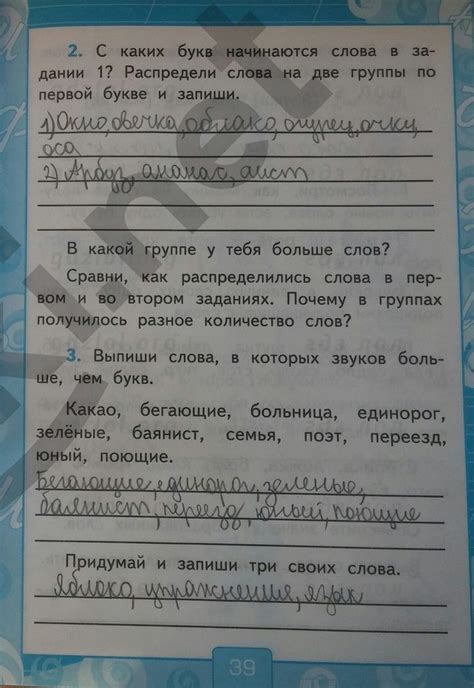 2. С каких букв начинаются слова в за-
дании 1? Распредели слова на две группы по
первой букве и запиши.
1) Окно, овечка, облако, огурец, очки,
оса
2) Арбуз, ананас, аист
В какой группе у тебя больше слов?
Сравни, как распределились слова в пер-
вом и во втором заданиях. Почему в группах
получилось разное количество слов?
3. Выпиши слова, в которых звуков боль-
ше, чем букв.
Какао, бегающие, больница, единорог,
зелёные, баянист, семья, поэт, переезд,
юный, поющие.
Бегающие, единорог, зеленые,
баянист, переезд, юный, поющие
Придумай и запиши три своих слова.
Яблоко, упражнения, язык
39